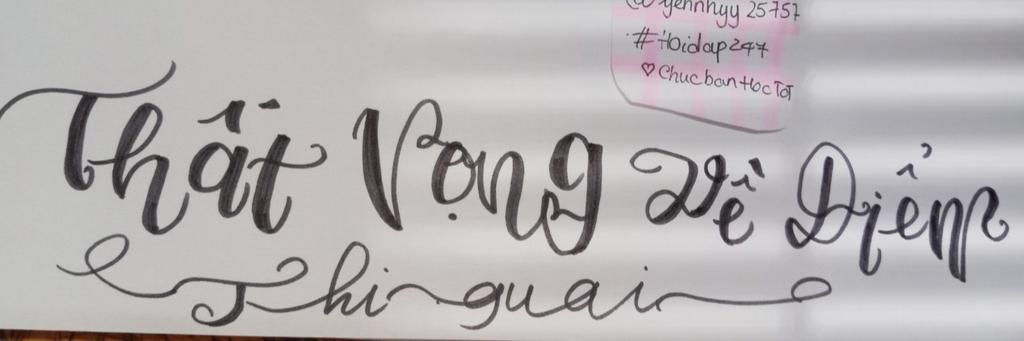 @yennhyy25757
#Hoidap247
♡ChucbanHocToT
Thất Vọng Về Điểm
Thi quai